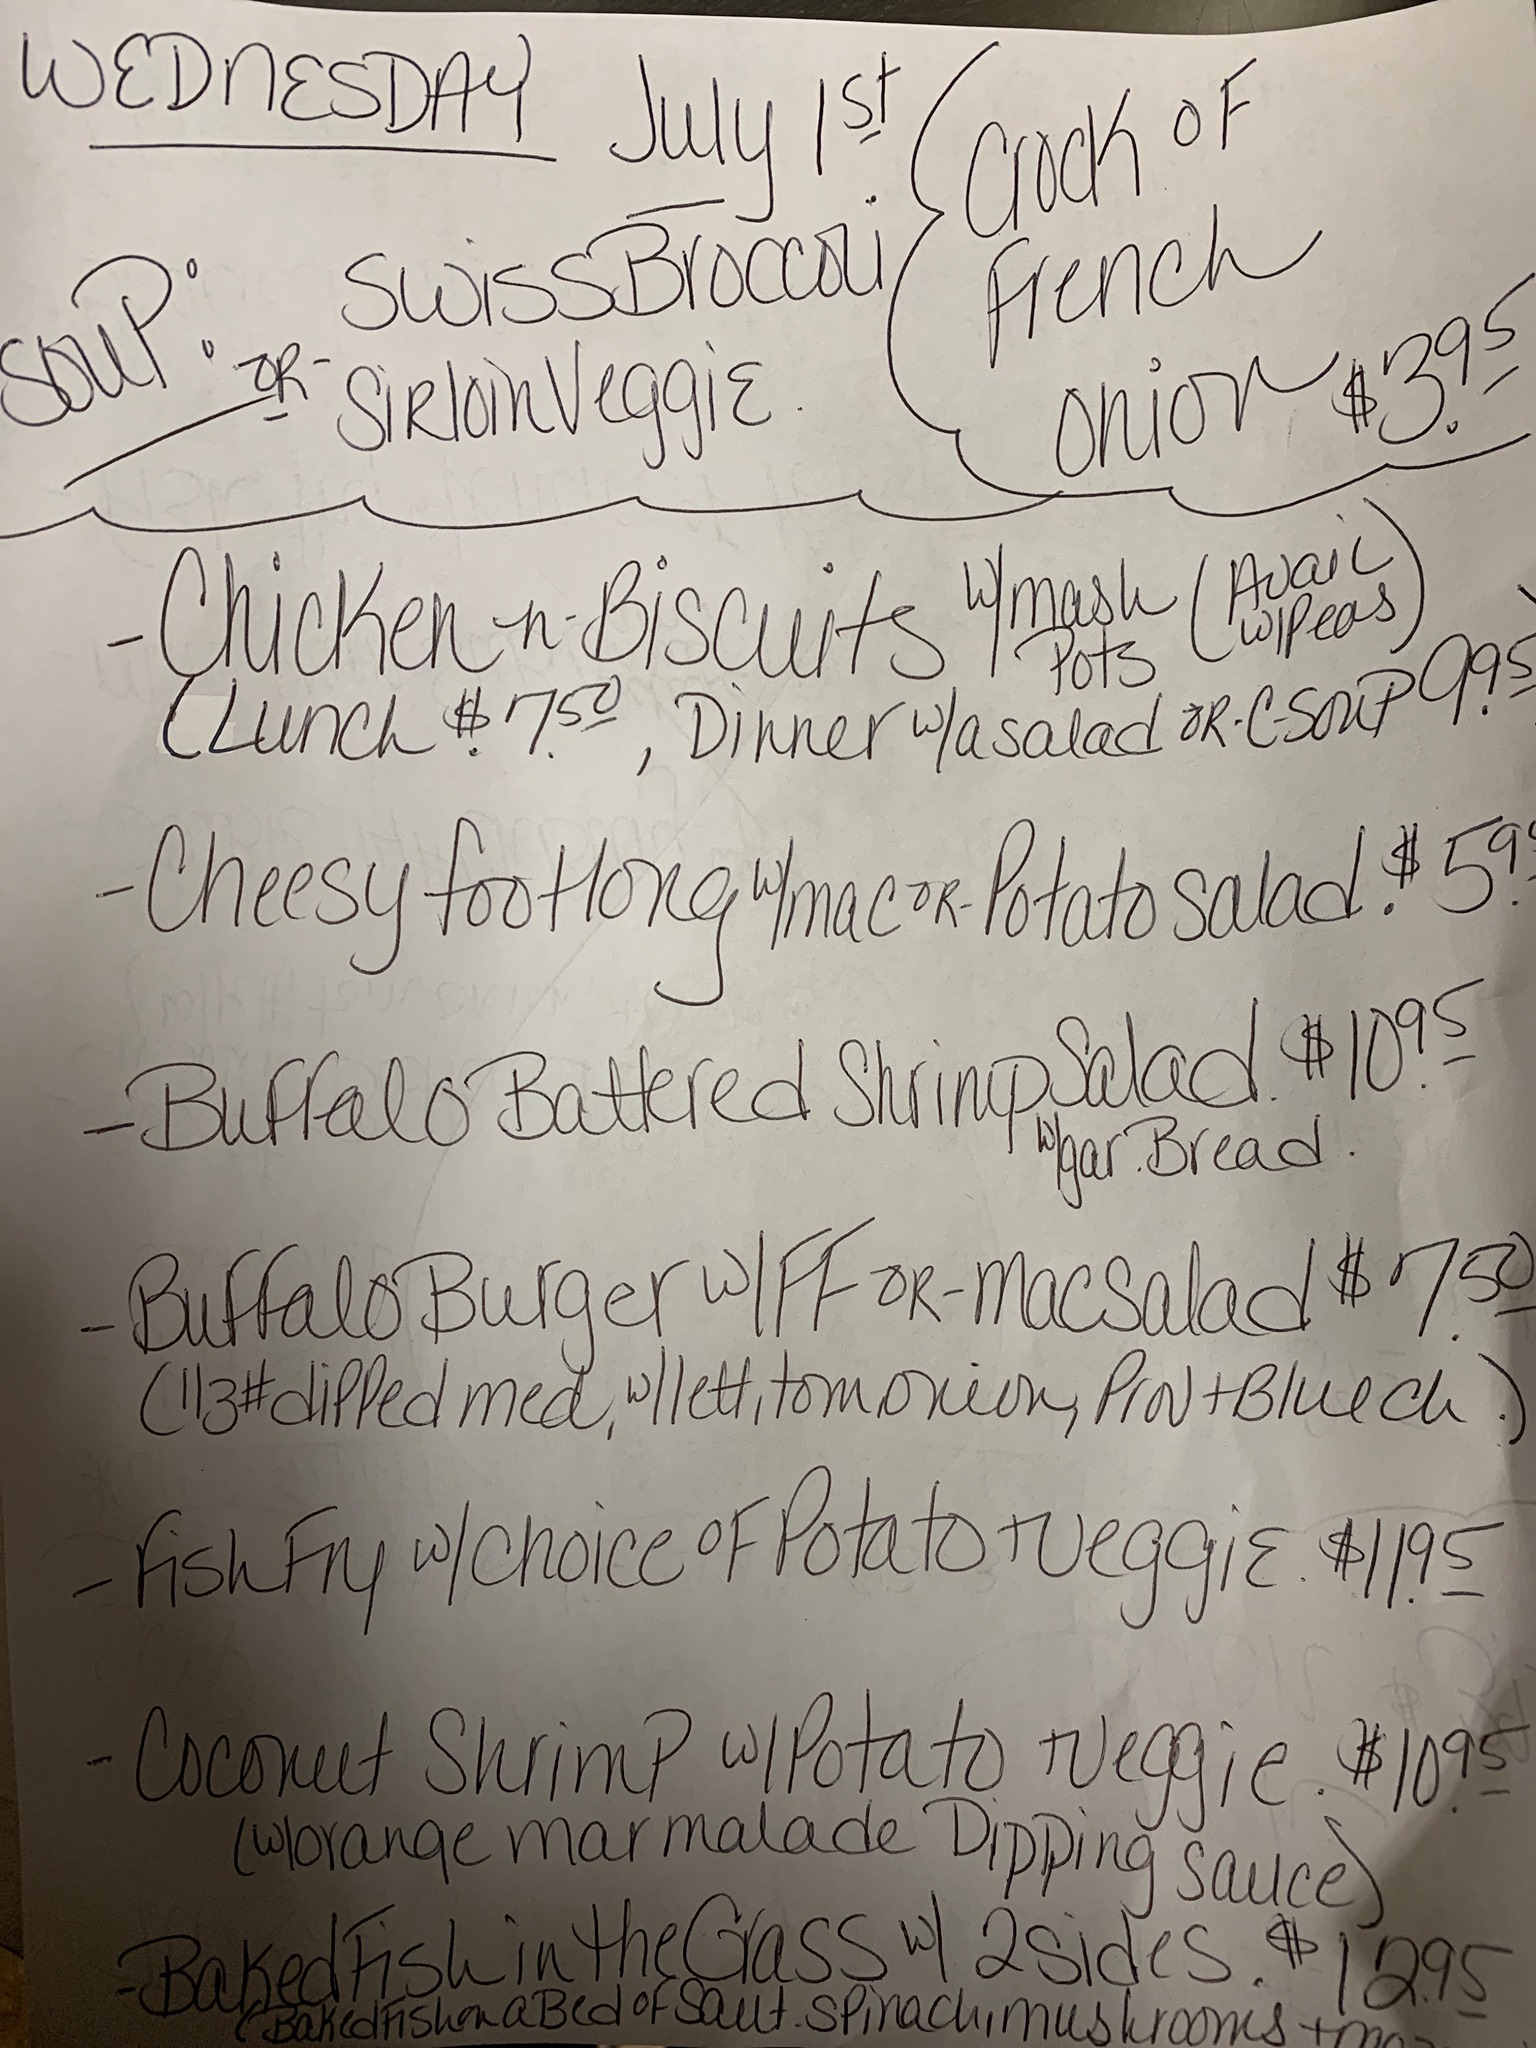 WEDNESDAY July 1st
SOUP: SWISS Broccoli
-OR- SIRloin Veggie.
Crock OF
French
Onion $3.95
- Chicken-n-Biscuits w/mash Pots (Avail w/Peas)
(Lunch $7.50, Dinner w/a salad OR-C-SOUP 9.95
- Cheesy footlong w/mac OR-Potato Salad. $5.95
- Buffalo Battered Shrimp Salad. $10.95
w/gar. Bread.
- Buffalo Burger w/FF OR-mac Salad $7.50
(1/3# dipped med, w/lett, tom onion, Prov + Blue ch.)
- Fish Fry w/choice OF Potato + Veggie. $11.95
- Coconut Shrimp w/Potato + Veggie. $10.95
(w/orange marmalade Dipping sauce)
- Baked Fish in the Grass w/ 2 sides. $12.95
(Baked Fish on a Bed of Saut. Spinach, mushrooms +